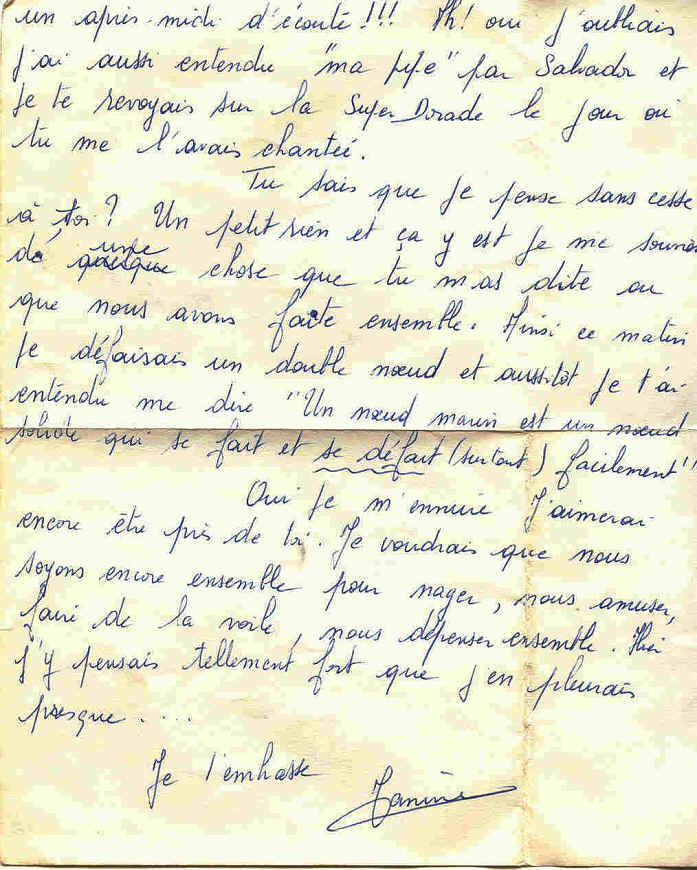 un après-midi d'écoute!!! Ah! oui j'oubliais
j'ai aussi entendu "ma pipe" par Salvador et
je te revoyais sur la Super Dorade le jour où
tu me l'avais chantée.
Tu sais que je pense sans cesse
à toi? Un petit rien et ça y est je me souviens
de quelque une chose que tu m'as dite ou
que nous avons faite ensemble. Ainsi ce matin
je défaisais un double nœud et aussitôt je t'ai
entendu me dire "Un nœud marin est un nœud
solide qui se fait et se défait (surtout) facilement"
Oui je m'ennuie J'aimerai
encore être près de toi. Je voudrais que nous
soyons encore ensemble pour nager, nous amuser,
faire de la voile, nous dépenser ensemble. Hier
j'y pensais tellement fort que j'en pleurais
presque....
Je t'embrasse
Janine